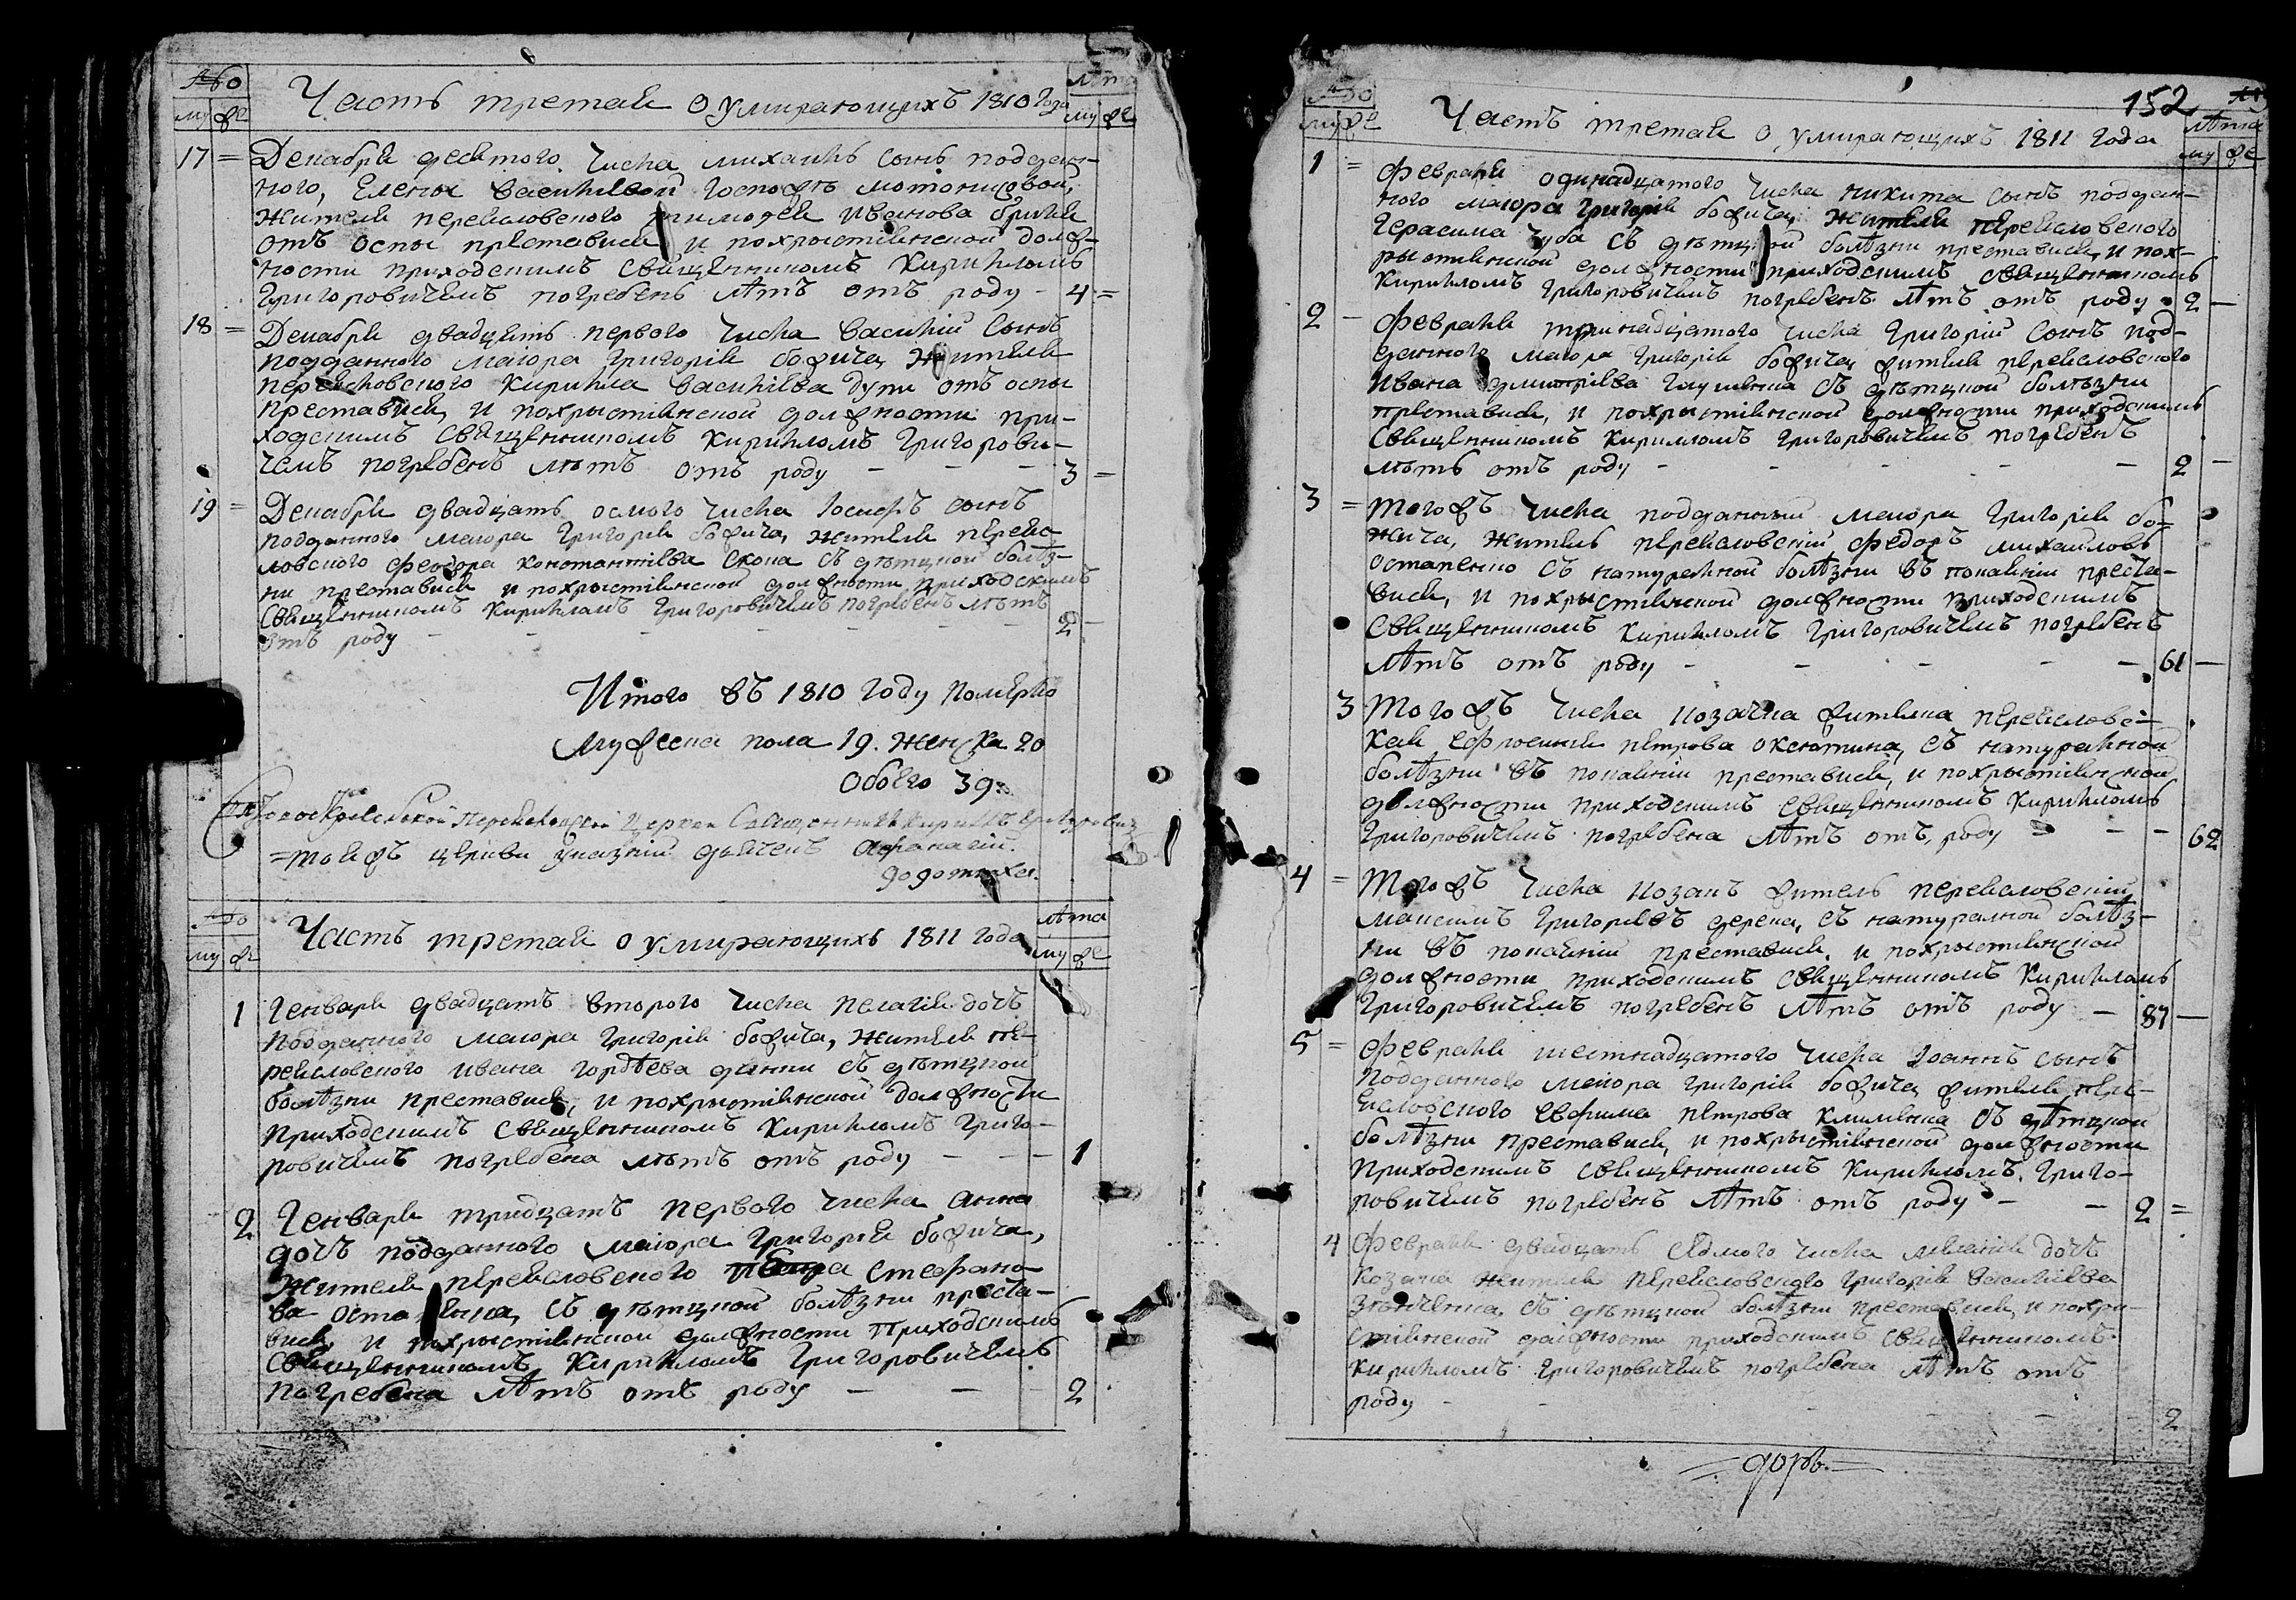 Часть третая о умирающихъ 1810 года
Лѣта
му же
му же
17 = Декабря десятого числа михаилъ сынъ поддан-
ного, Елены васильевой Господѣ мотонисовой,
жителя переясловского тимофея Иванова
отъ оспы преставися и похрыстіянской долж-
ности приходскимъ священникомъ Кирилломъ
Григоровичемъ погребенъ лѣтъ отъ роду - 4 =
18 = Декабря двадцать первого числа василій сынъ
подданного маіора Григорія божича, жителя
переясловского Кирилла васильева дути отъ оспы
преставися, и похрыстіянской должности при-
ходскимъ священникомъ Кирилломъ Григорови-
чемъ погребенъ лѣтъ отъ роду - - - 3 =
19 = Декабря двадцать осмого числа Іосифъ сынъ
подданного маіора Григорія божича, жителя переяс-
ловского феодора константіева скока съ дѣтцкой болѣз-
ни преставися и похрыстіянской должности приходскимъ
священникомъ Кирилломъ Григоровичемъ погребенъ лѣтъ
отъ роду - - - - - - 2 -
Итого въ 1810 году померло
мужеска пола 19. женска 20
обоего 39:
Церкви Священникъ Кириллъ Григоровичъ
= тоя жъ церкви указній дьячекъ Афанасій
Часть третая о умирающихъ 1811 года
лѣта
му же
му же
1 Генваря двадцать второго числа пелагія дочь
подданного маіора григорія божича, жителя пе-
реясловского ивана гордѣева съ дѣтцкой
болѣзни преставися, и похрыстіянской должности
приходскимъ священникомъ Кирилломъ Григо-
ровичемъ погребена лѣтъ отъ роду - - - 1
2 Генваря тридцать первого числа анна
дочь подданного маіора Григорія божича,
жителя переясловского стефано-
ва остапенка, съ дѣтцкой болѣзни преста-
вися, и похрыстіянской должности приходскимъ
священникомъ Кирилломъ Григоровичемъ
погребена лѣтъ отъ роду - - 2
152
Часть третая о умирающихъ 1811 года
лѣта
му же
му же
1 = февраля одинадцатого числа никита сынъ поддан-
ного маіора григорія божича, жителя переясловского
герасима зуба съ дѣтцкой болѣзни преставися, и пох-
рыстіянской должности приходскимъ священникомъ
Кирилломъ Григоровичемъ погребенъ лѣтъ отъ роду - 2 -
2 - февраля тринадцатого числа григорій сынъ под-
данного маіора григорія божича, жителя переясловского
ивана дмитріева глушенка съ дѣтцкой болѣзни
преставися, и похрыстіянской должности приходскимъ
священникомъ Кирилломъ Григоровичемъ погребенъ
лѣтъ отъ роду - - - - - 2 -
3 = Тогожъ числа подданный маіора григорія бо-
жича, житель переясловскій федоръ михайловъ
остапенко съ натуралной болѣзни въ покаяніи преста-
вися, и похрыстіянской должности приходскимъ
священникомъ Кирилломъ Григоровичемъ погребенъ
лѣтъ отъ роду - - - - - 61 -
3 Тогожъ числа козачка жителка переясловс-
кая ефросинія петрова оксютина, съ натуралной
болѣзни въ покаяніи преставися, и похрыстіянской
должности приходскимъ священникомъ Кирилломъ
Григоровичемъ погребена лѣтъ отъ роду - - - 62
4 = Тогожъ числа козакъ житель переясловскій
максимъ григоріевъ дерека, съ натуралной болѣз-
ни въ покаяніи преставися, и похрыстіянской
должности приходскимъ священникомъ Кирилломъ
Григоровичемъ погребенъ лѣтъ отъ роду - 87 -
5 = февраля шестнадцатого числа Іоаннъ сынъ
подданного маіора григорія божича, жителя пере-
ясловского евфима петрова клименка съ дѣтцкой
болѣзни преставися, и похрыстіянской должности
приходскимъ священникомъ Кирилломъ Григо-
ровичемъ погребенъ лѣтъ отъ роду - - 2 =
4 февраля двадцать седмого числа меланія дочь
козака жителя переясловского григорія васильева
съ дѣтцкой болѣзни преставися, и похри-
стіянской должности приходскимъ священникомъ
Кирилломъ Григоровичемъ погребена лѣтъ отъ
роду - - - - - - 2